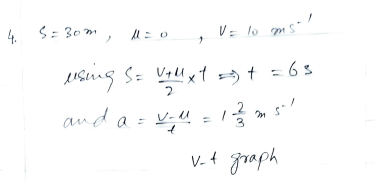 4. S = 30 m , u = 0 , V = 10 ms⁻¹
using S = (V+u)/2 × t ⇒ t = 6 s
and a = (V-u)/t = 1 2/3 m s⁻¹
V-t graph